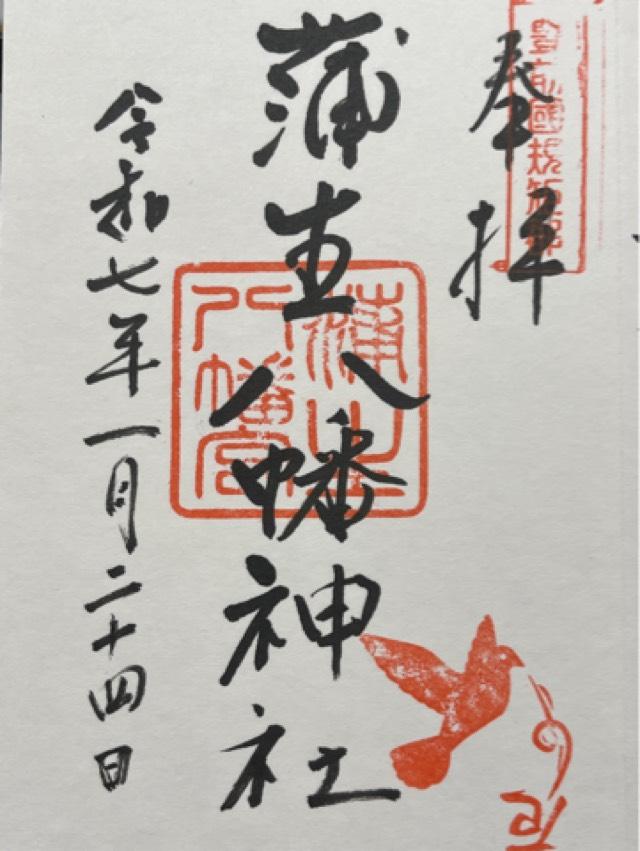 奉拝
豊前國規矩郡
蒲生八幡神社
蒲生八幡宮
令和七年一月二十四日